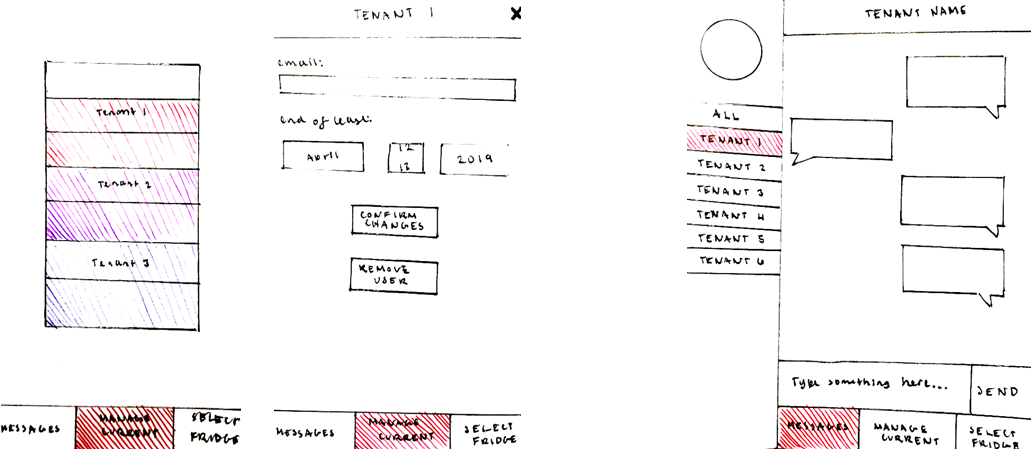 Tenant 1
Tenant 2
Tenant 3
MESSAGES
MANAGE
CURRENT
SELECT
FRIDGE
TENANT 1
X
email:
end of lease:
April
12
13
2019
CONFIRM
CHANGES
REMOVE
USER
MESSAGES
MANAGE
CURRENT
SELECT
FRIDGE
ALL
TENANT 1
TENANT 2
TENANT 3
TENANT 4
TENANT 5
TENANT 6
TENANT NAME
Type something here...
SEND
MESSAGES
MANAGE
CURRENT
SELECT
FRIDGE